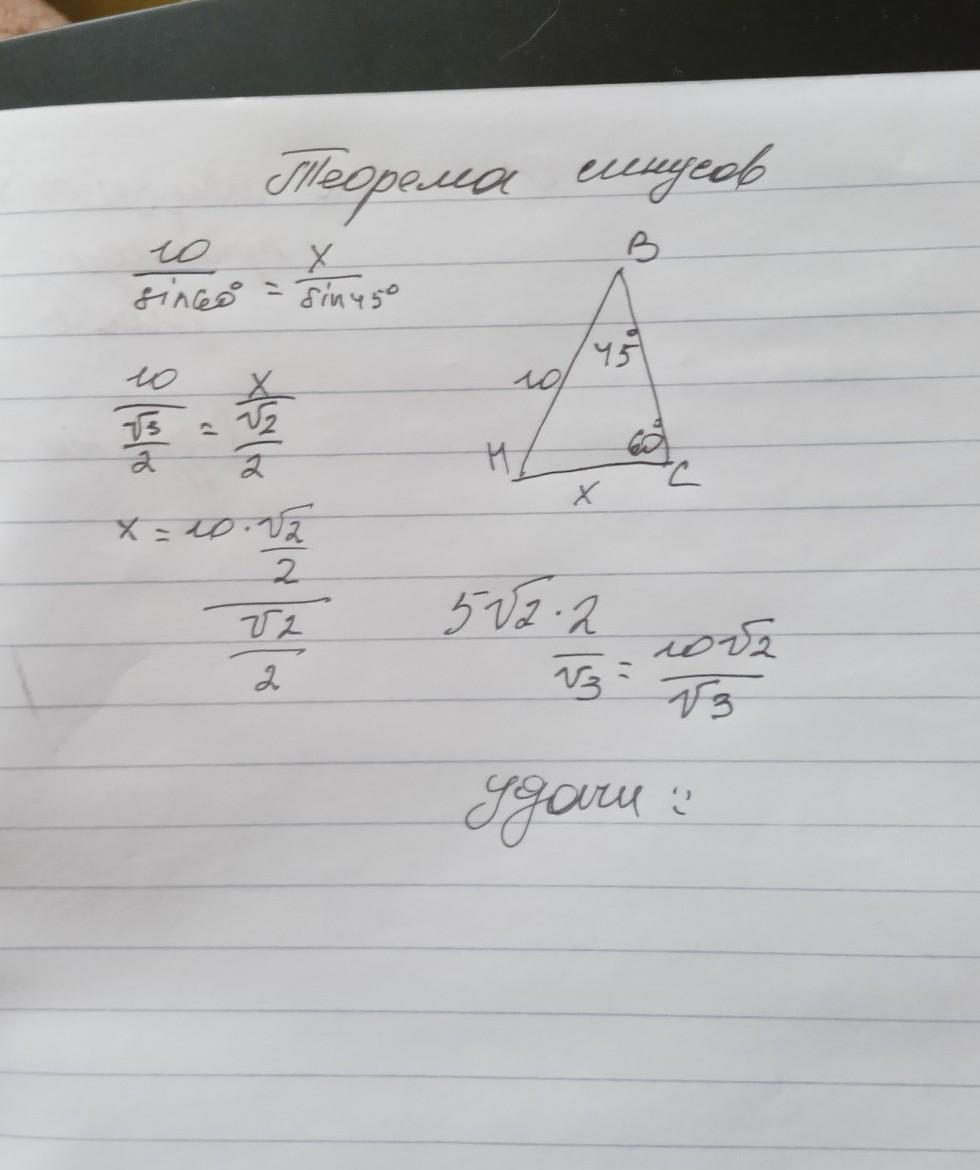 Теорема синусов
10/sin60° = x/sin45°
B
45°
10
60°
H
C
x
10/(√3/2) = x/(√2/2)
x = (10·√2/2)/(√2/2)
5√2·2/√3 = 10√2/√3
Удачи :)